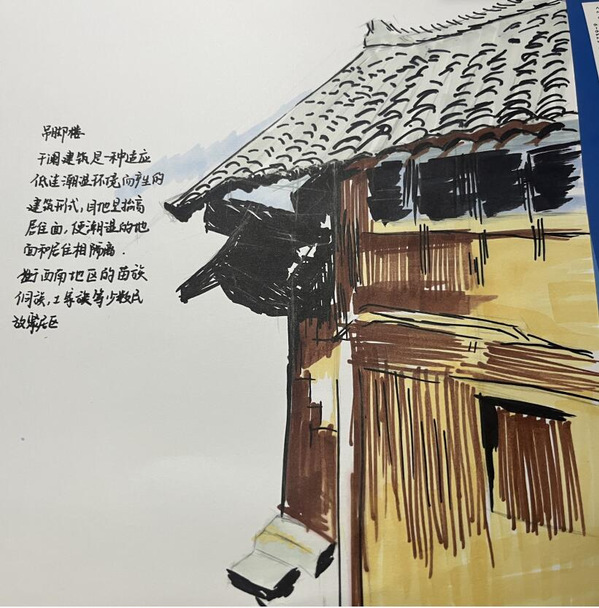 吊脚楼
干阑建筑是一种适应
低洼潮湿环境而产生的
建筑形式，目地是抬高
居住面，使潮湿的地
面和居住相隔离.
西南地区的苗族
侗族，土家族等少数民
族聚居区